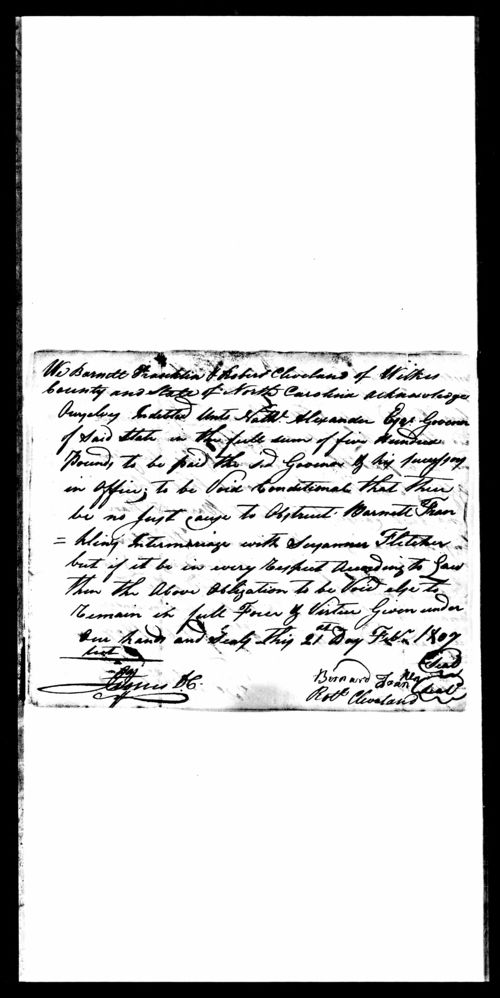 We Barnett Franklin & Robert Cleveland of Wilkes
County and State of North Carolina acknowledge
Ourselves Indetted Unto Nathl. Alexander Esqr Govenor
of Said State in the full sum of five Hundred
Pounds, to be paid the sd Govenor & his successors
in Office, to be Void Conditional that there
be no just cause to Obstruct Barnett Fran
= kling Intermarriage with Susannah Fletcher
but if it be in every Respect According to Law
then the Above Obligation to be Void else to
Remain in full Force & Virtue Given under
Our hands and Seals this 21st Day Feby. 1807
test
Bernard Franklin Seal
Robt. Cleveland Seal